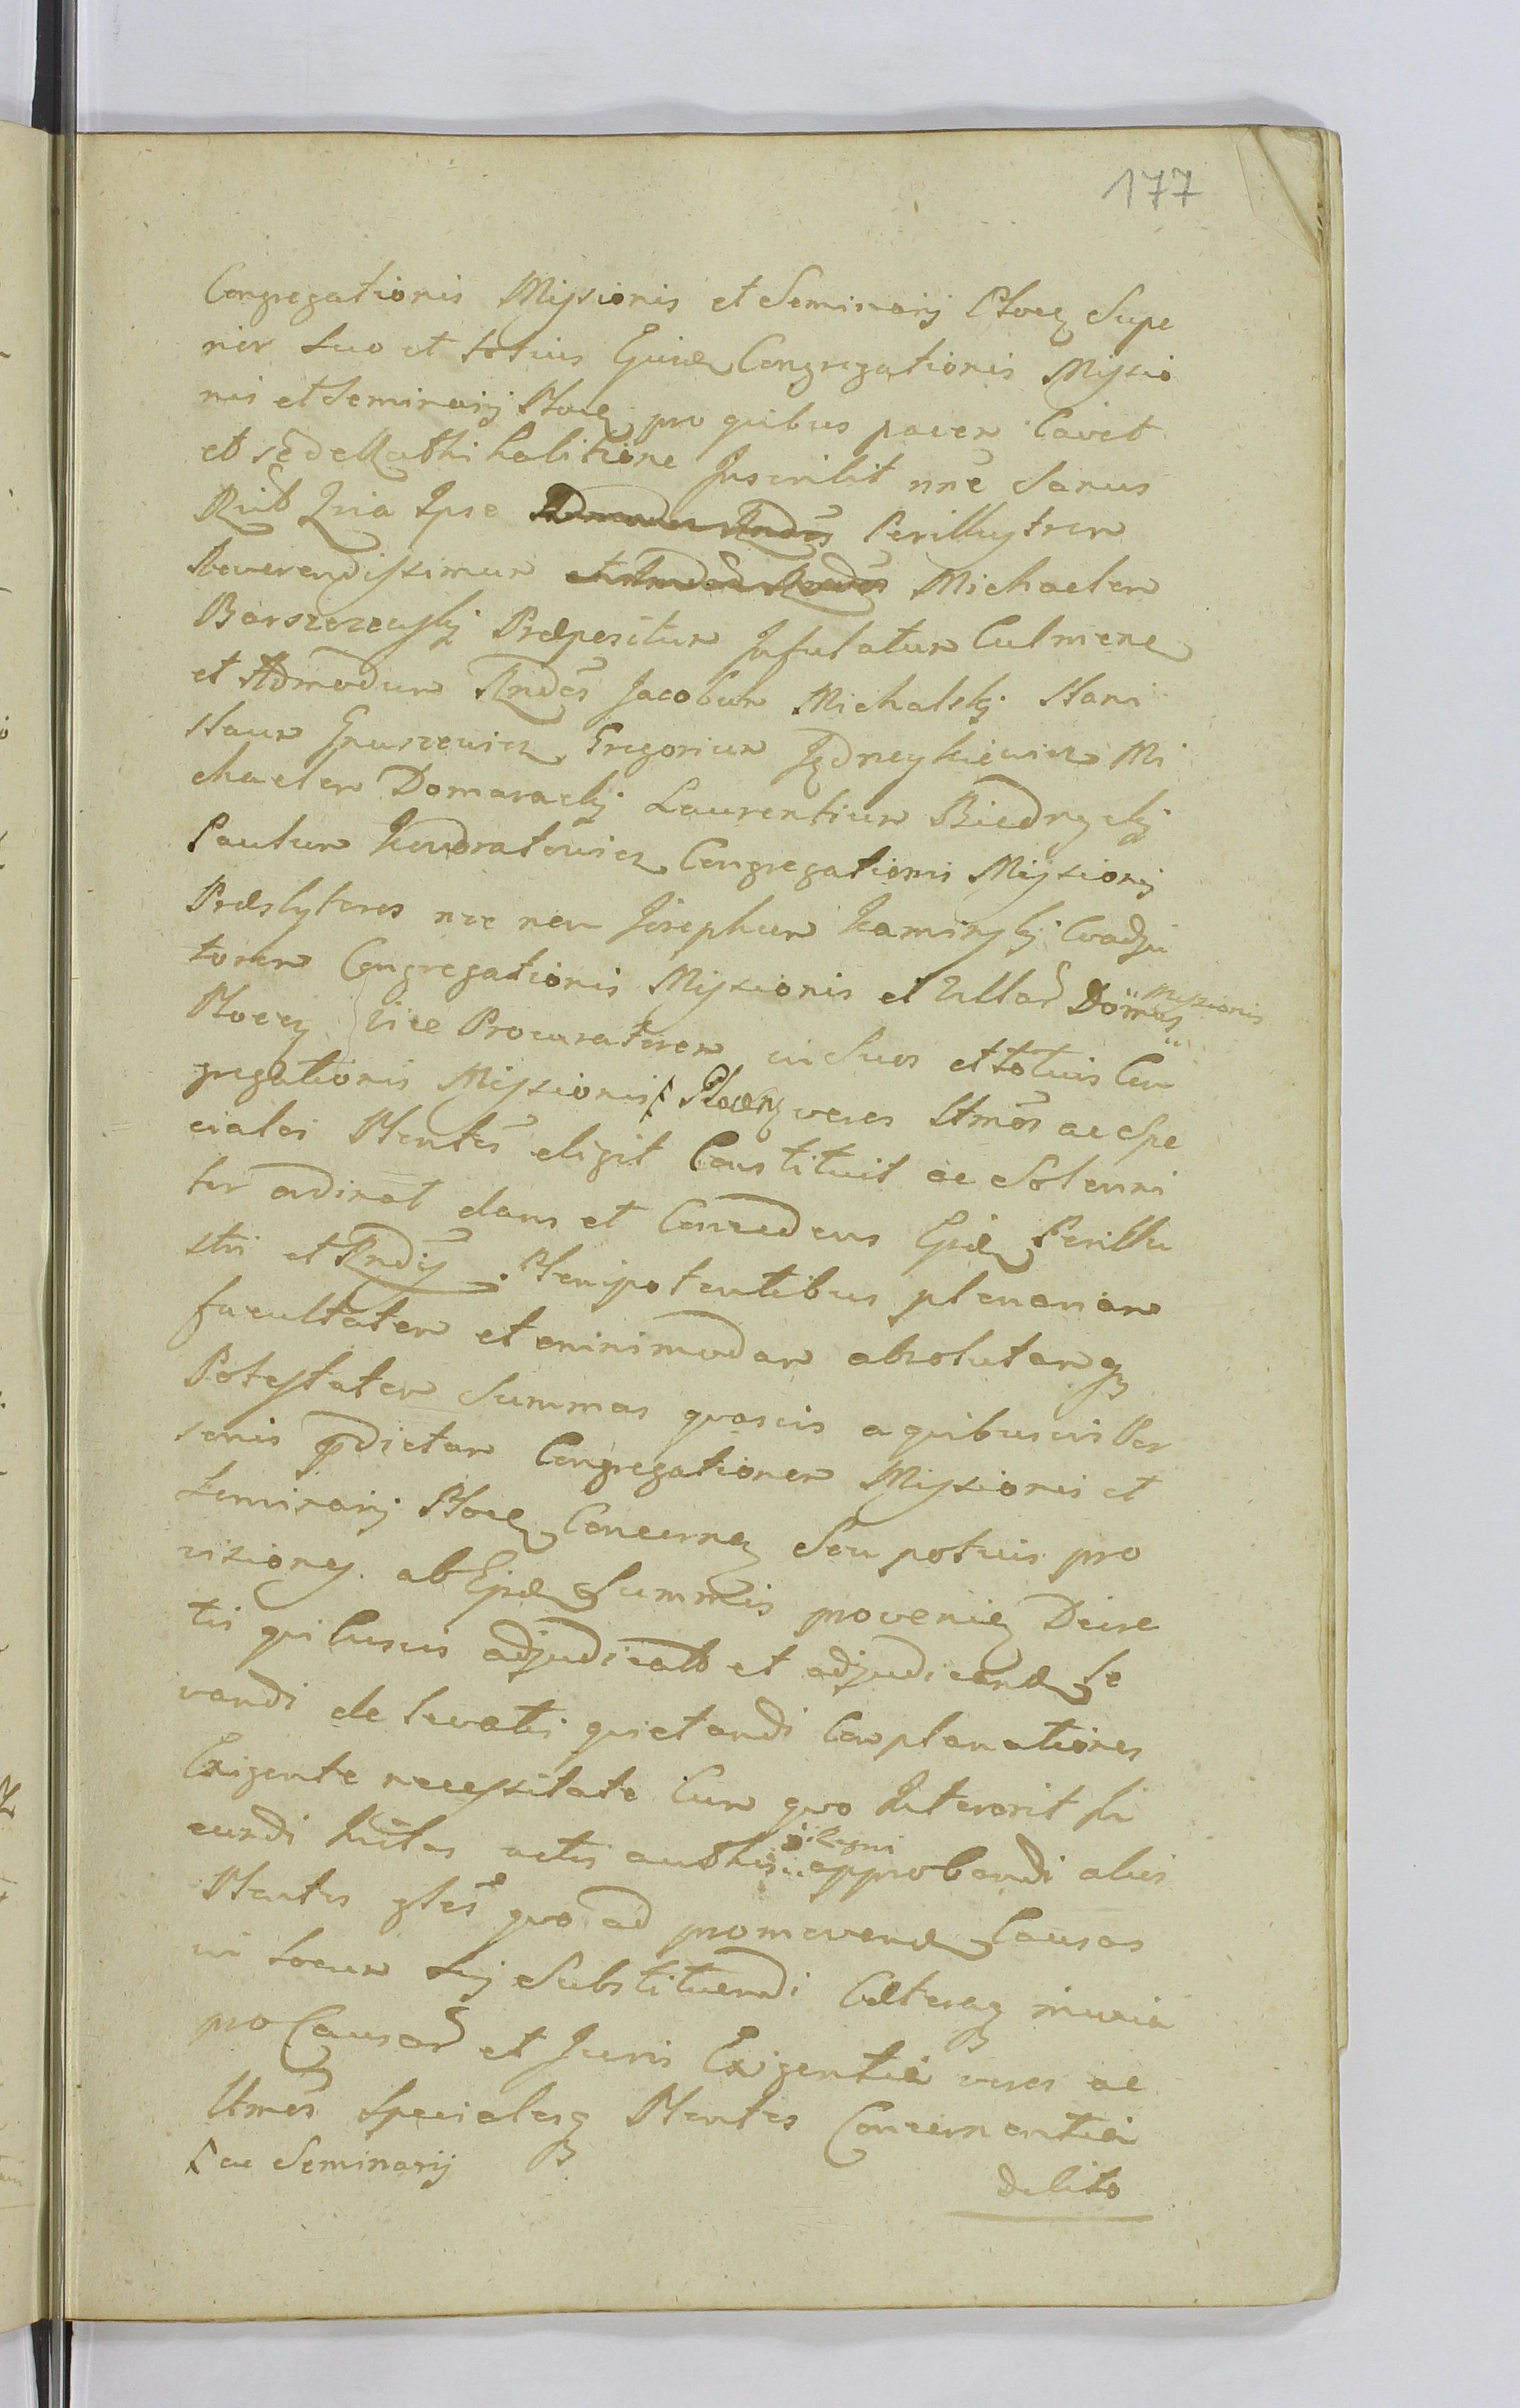 177
Congregationis Missionis et Seminarij Ploceñ Supe
rior Suo et totius Ejusd Congregationis Missio
nis et Seminarij Ploceñ pro quibus pacem Cavet
et se de Rathi habitione Inscribit nne Sanus
Quia Ipse Admodum Rndos Perillustrem
Reverendissimum Michaelem
Barszczewskij Præpositum Infulatum Culmens
et Admodum Rndos Jacobum Michalskj Stani
slaum Gruszewicz Gregorium Jędrzeykiewicz Mi
chaelem Domaradzkj Laurentium Biedrzyckj
Paulum Kondratowicz Congregationis Missionis
Præsbyteros nec non Josephum Kaminskj Coadju
torem Congregationis Missionis et Domus Missionis
Plocens Vice Procuratorem uti Suos et totius Con
gregationis Missionis /: Plocens veros ltmos ac Spe
ciales Plentes eligit Constituit ac Solenni
ter ordinat dans et Concedens Ejsd Perillu
stri et Rndis Plenipotentibus plenariam
facultatem et omnimodam absolutamq
Potestatem Summas quasvis a quibusvis Per
sonis prdictam Congregationem Missionis et
Seminarij Ploceñ Concernen Seu potius pro
visiones ab Ejsd Summis provenien Decre
tis quibusvis adjudicatas et adjudicand Le
vandi de levatis quietandi Complanationes
Exigente necessitate Cum quo Intererit fa
ciendi tales actis authis Regni approbandi alios
Plentes gles quo ad promovend Causas
in locum Sui Substituendi Cæteraq munia
pro Causar et Juris Exigentia veros ac
ltmos Specialesq Plentes Concernentia
/: ac Seminarij
debito